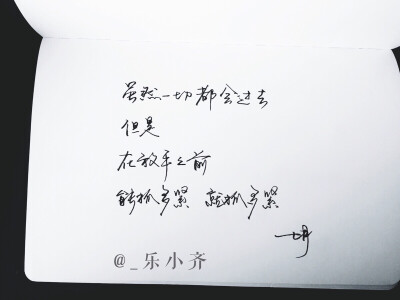 虽然一切都会过去
但是
在放手之前
能抓多紧 就抓多紧
@_乐小齐